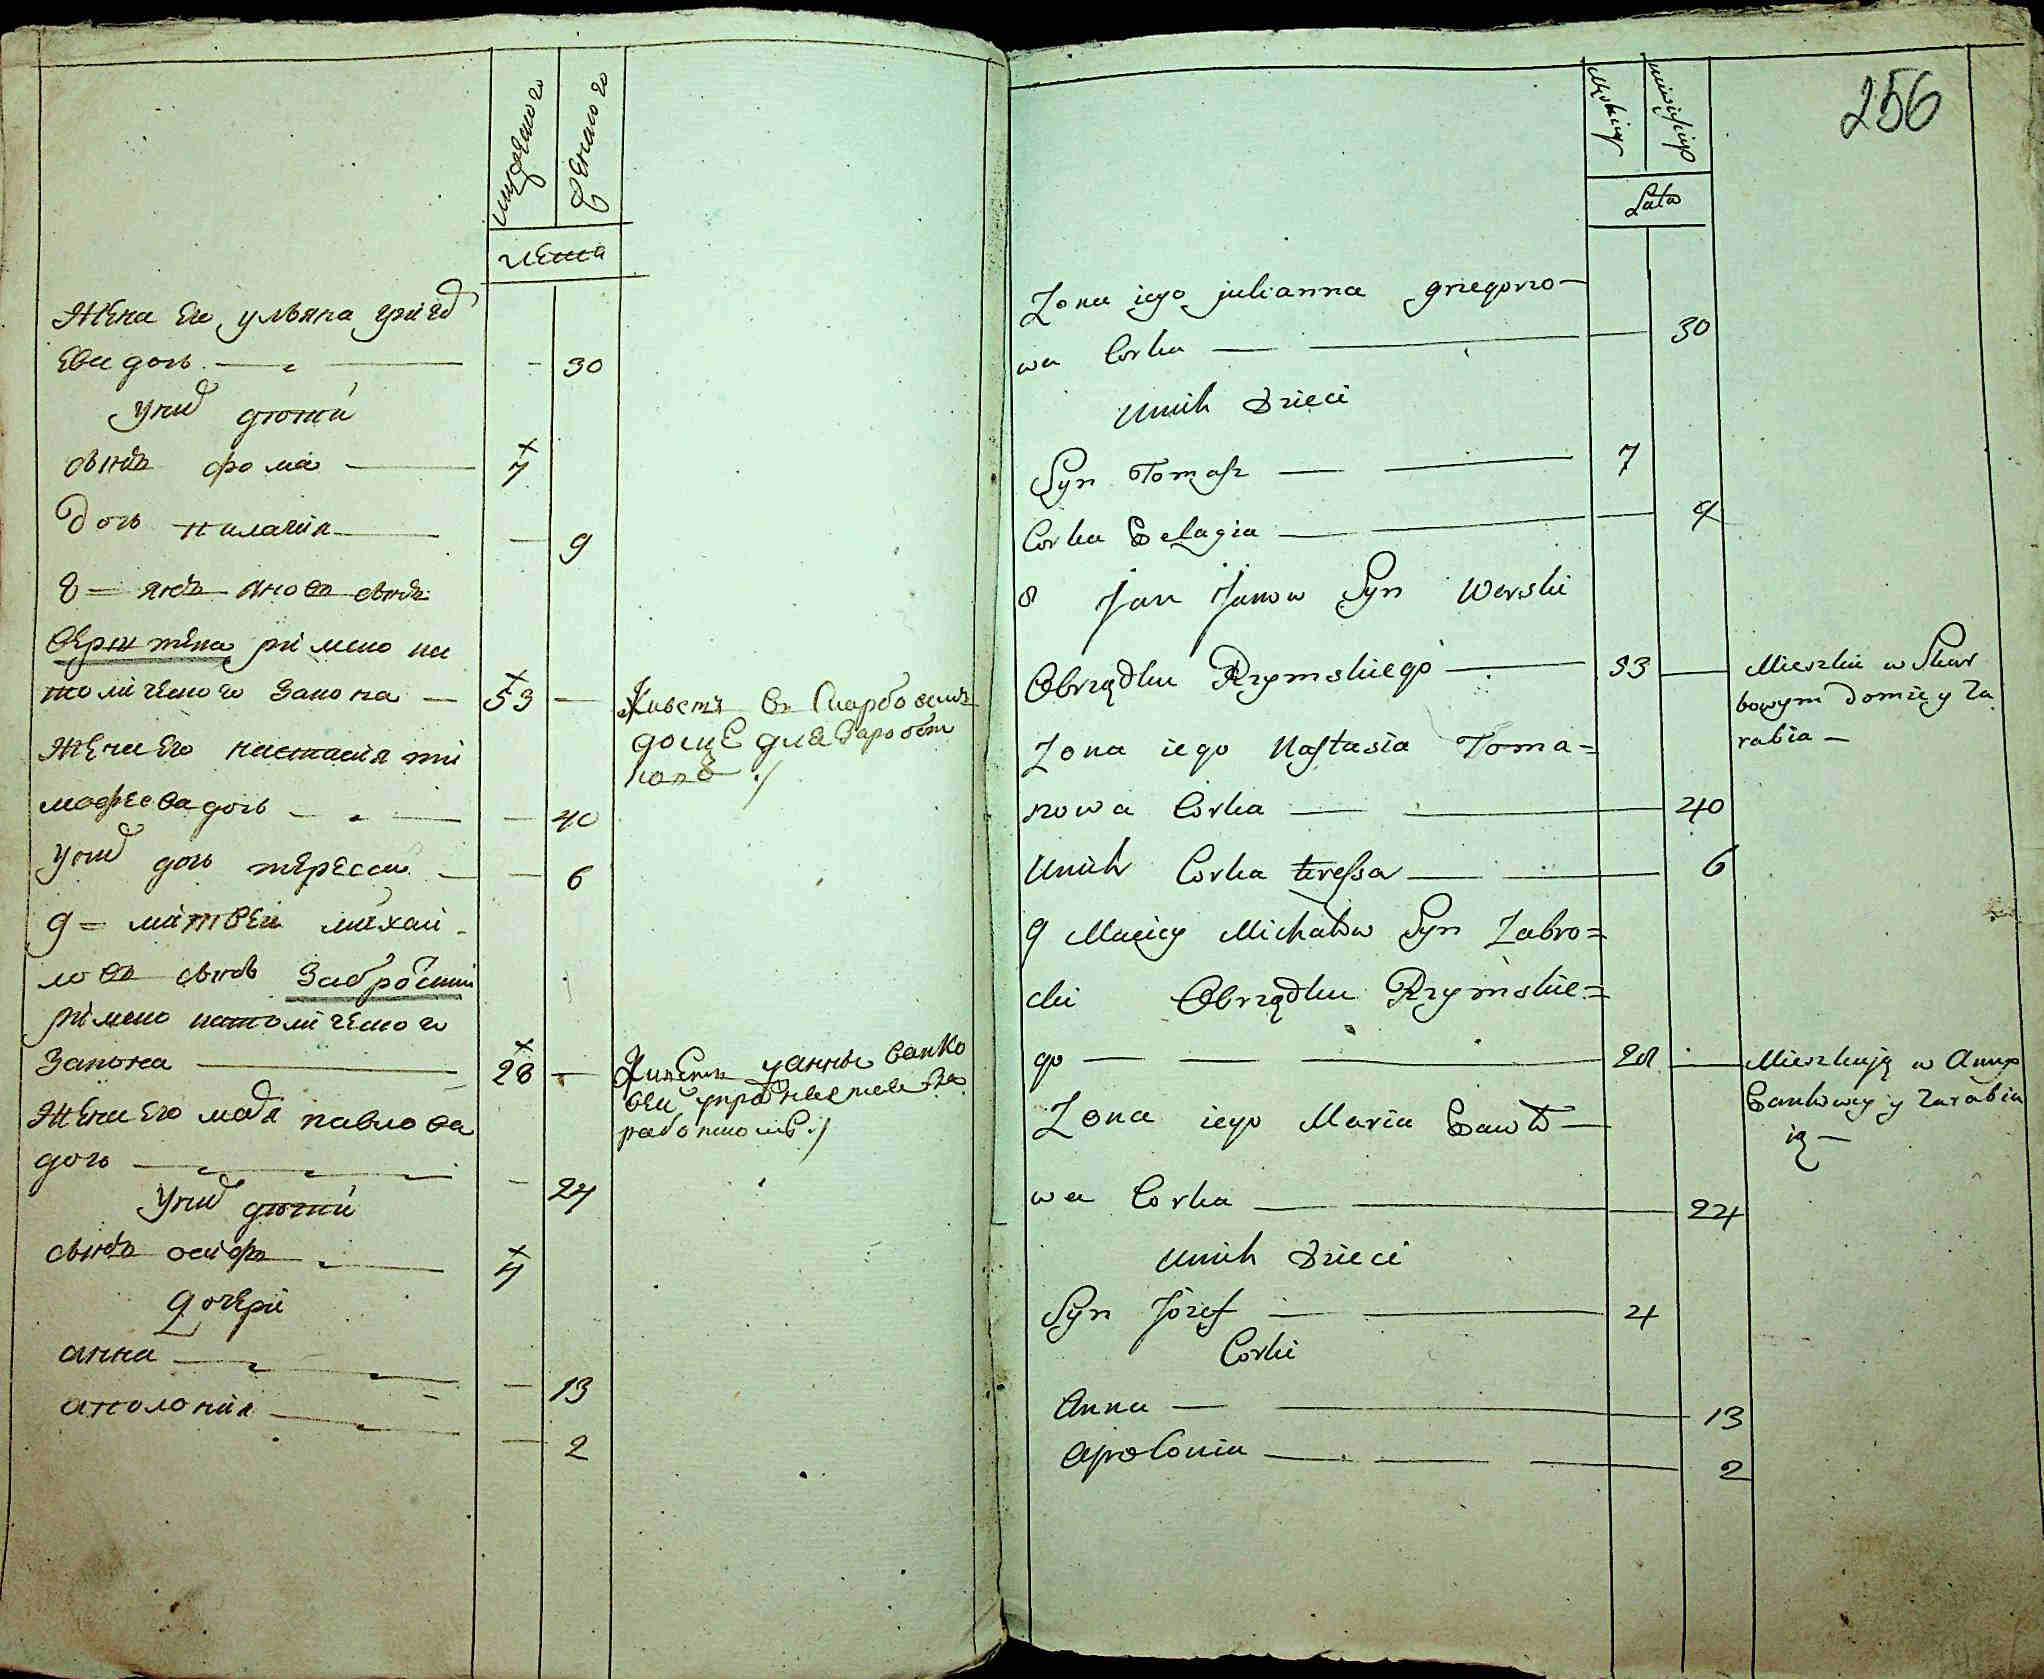 мужеского
женского
лета
Жена Его ульяна григо
Ева дочь
у них дети
сынъ фома 7
дочь пилагия 9
30
8 = янъ яновъ сынъ
римско ка
толического закона 53
Живетъ въ Скарбовомъ
доме для
Жена Его настасия ти
мофеева дочь 40
у них дочь тересса 6
9 = матвей михай
ловъ сынъ Забродски
римско католического
Закона 28
Живетъ у анны
Жена Его павлова
дочь 24
у них дети
сынъ осифъ 4
дочери
анна 13
аполония 2
256
Męskiey
Lata
Zona iego julianna grzegorzo-
wa Corka 30
Unich Dzieci
Syn Tomasz 7
Corka Pelagia 9
8 Jan Janow Syn Werski
Obrządku Rzymskiego 53
Mieszka w Skar
bowym domie y Za
rabia
Zona iego Nastasia Toma=
szowa Corka 40
Unich Corka teressa 6
9 Maciey Michałow Syn Zabro=
dzki Obrządku Rzymskie=
go 28
Mieszkaią w Anny
Bankowey y Zarabia
ią
Zona iego Maria Pawło
wa Corka 24
Unich Dzieci
Syn Józef 4
Corki
Anna 13
Apolonia 2